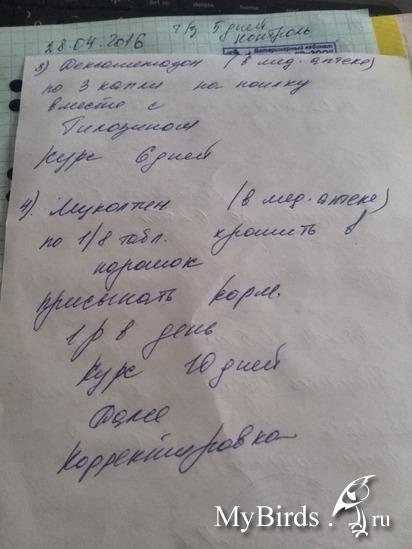 28.04.2016
ч/з 5 дней
контроль
Ветеринарный кабинет
3) Дексаметазон (в мед. аптеке)
по 3 капли на поилку
вместе с
Тилозином
курс 6 дней
4). Мукалтин (в мед. аптеке)
по 1/8 табл. крошить в
порошок
присыпать корм.
1 р в день
курс 10 дней
Далее
Корректировка
MyBirds.ru